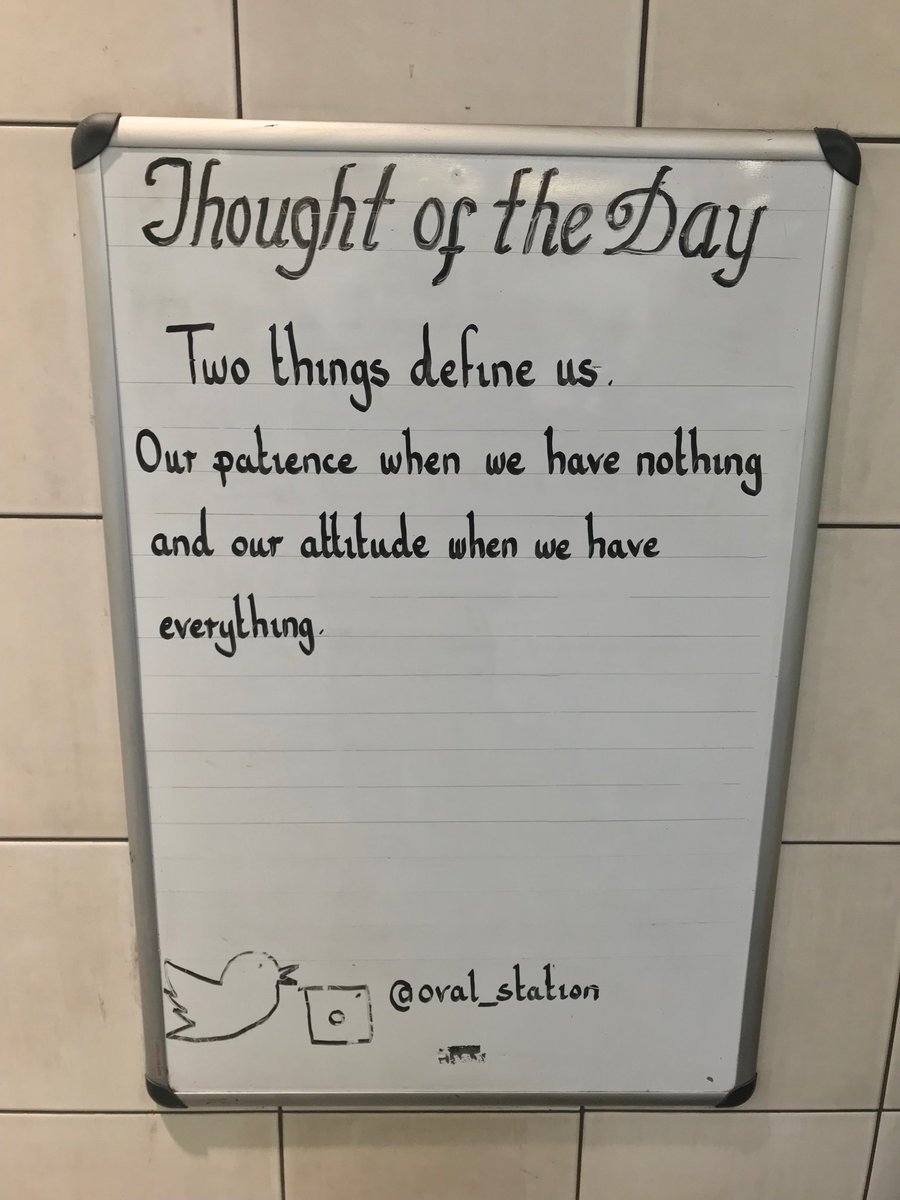 Thought of the Day
Two things define us.
Our patience when we have nothing
and our attitude when we have
everything.
@oval_station